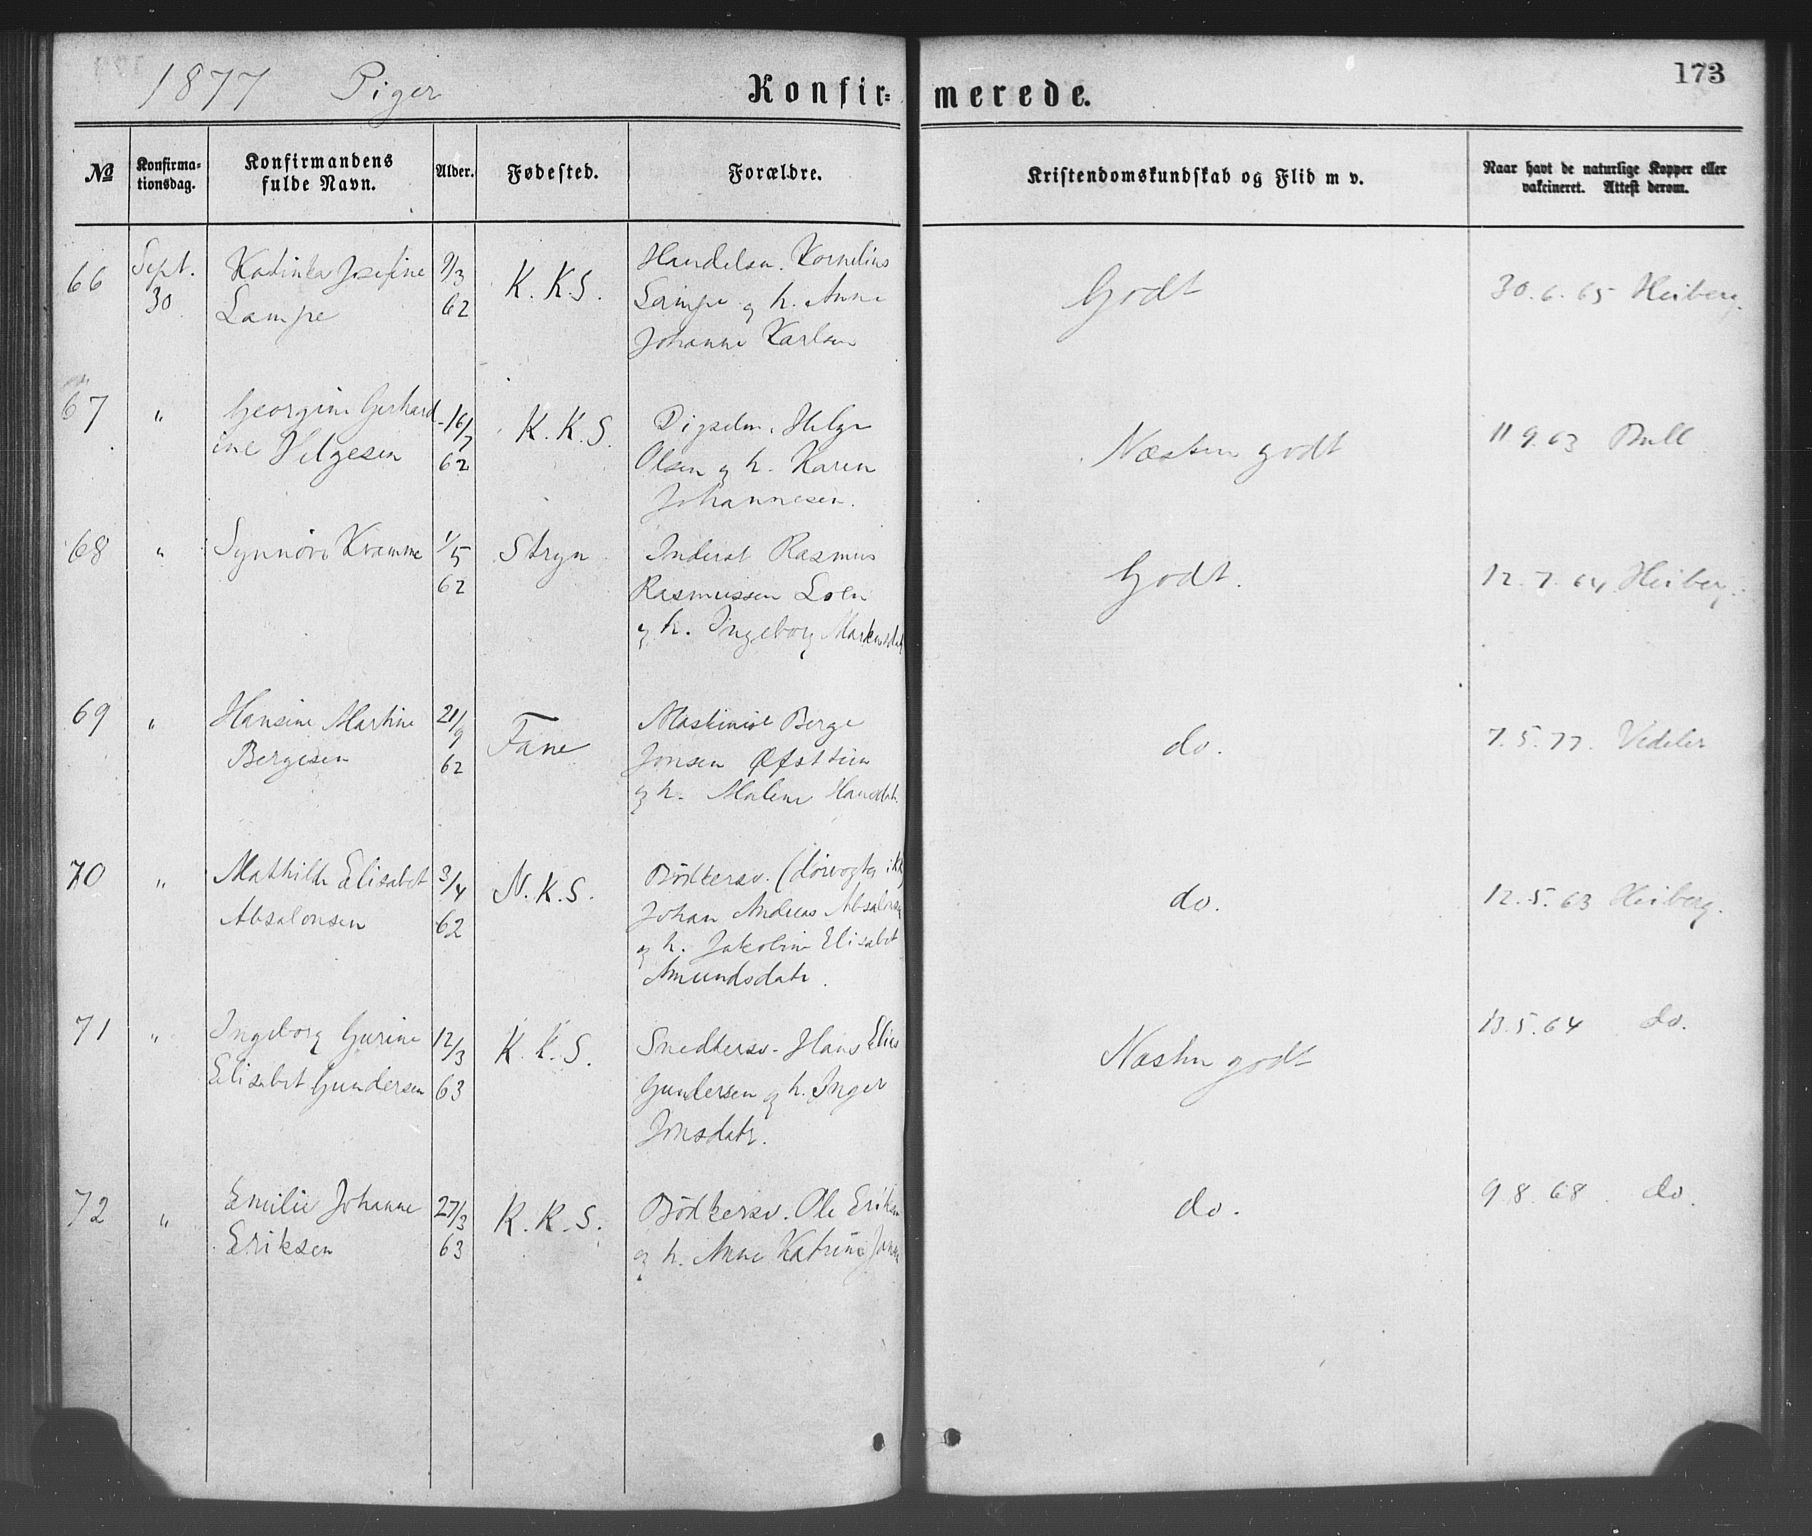 1877 Piger
Konfir-
merede.
173
№
Konfirma-
tionsdag.
Konfirmandens
fulde Navn.
Alder.
Fødested.
Forældre.
Kristendomskundskab og Flid m v.
Naar havt de naturlige Kopper eller
vakcineret. Attest derom.
66
Sept.
30
Kadinka Josefine
Lampe
9/3
62
K. K. S.
Handelsm. Kornelius
Lampe og h. Anne
Johanne Karlsen
Godt
30. 6. 65 Heiberg.
67
"
Georgine Gerhard
ine Helgesen
16/7
62
K. K. S.
Helge
Olsen og h. Karen
Johannesen.
Næsten godt
11 9. 63 Bull
68
"
Synnøve Kramme
1/5
62
Stryn
Inderst Rasmus
Rasmussen Loen
og h. Ingeborg Markusdat
Godt.
12. 7. 64 Heiberg.
69
"
Hansine Martine
Bergesen
21/9
62
Fane
Maskinist Berge
Jonsen
og h. Malene Hansdat.
do.
7. 5. 77. Vedeler
70
"
Mathilde Elisabet
Absalonsen
3/4
62
N. K. S.
Bødkersv. (
Johan Andreas Absalonsen
og h. Jakobine Elisabet
Amundsdatr.
do.
12. 5. 63 Heiberg.
71
"
Ingeborg Gurine
Elisabet Gundersen
12/3
63
K. K. S.
Snedkersv. Hans Elias
Gundersen og h. Inger
Jonsdatr.
Næsten godt
13. 5. 64 do.
72
"
Emilie Johanne
Eriksen
27/3
63
K. K. S.
Bødkersv. Ole Eriksen
og h. Anne Katrine
do.
9. 8. 68. do.